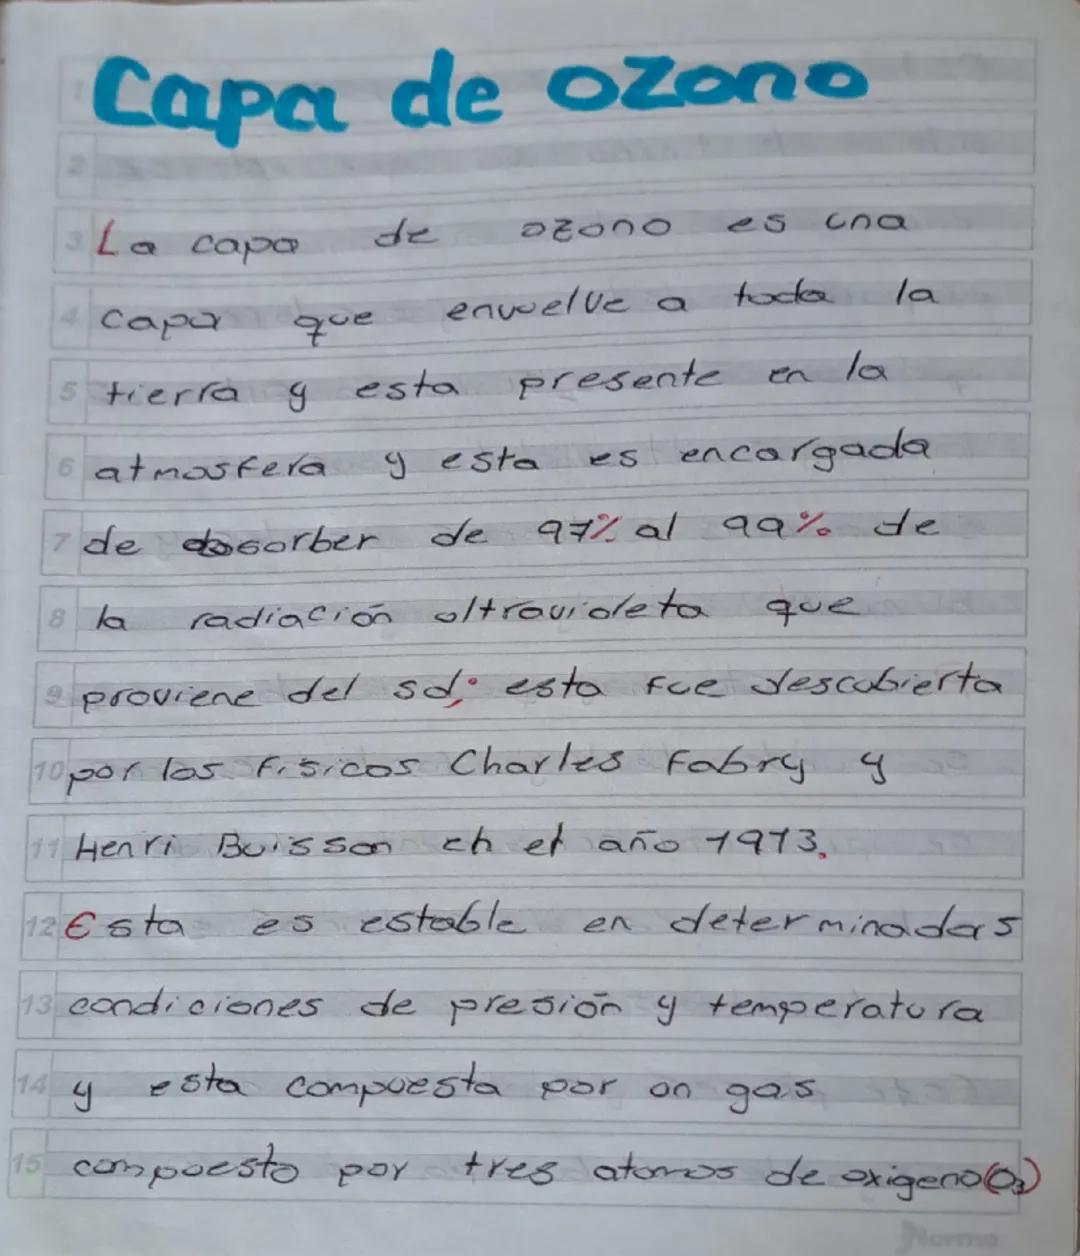 Capa de ozono
1
2
3 La capa de ozono es una
4 capa que envuelve a toda la
5 tierra y esta presente en la
6 atmosfera y esta es encargada
7 de absorber de 97% al 99% de
8 la radiación ultravioleta que
9 proviene del sol; esta fue descubierta
10 por los fisicos Charles Fabry y
11 Henri Buisson en el año 1913.
12 Esta es estable en determinadas
13 condiciones de presión y temperatura
14 y esta compuesta por un gas
15 compuesto por tres atomos de oxigeno (O₃)
Norma